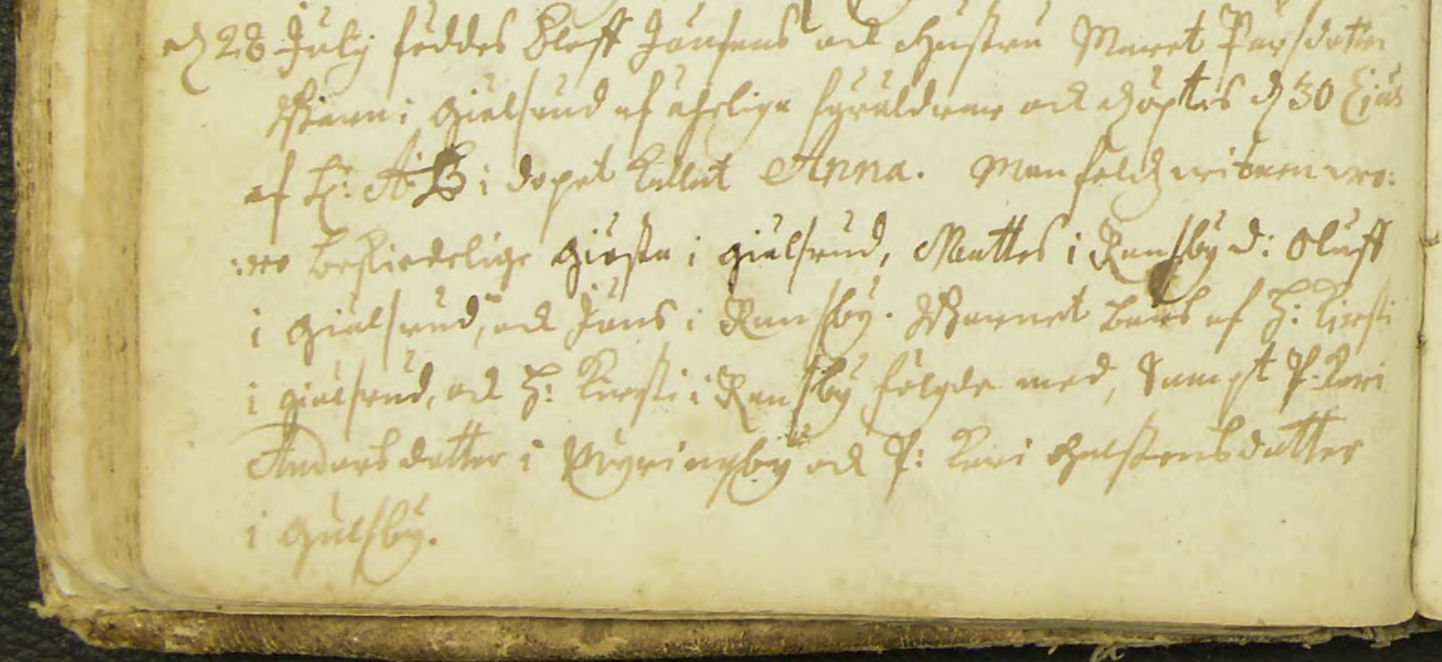 d 28 July föddes Oloff Jonsens ock Hustru Maret Pärsdotter
Barn i Gielsrud af ehrlige föräldrarne ock döptes d 30 Ejus
af H: A B i dopet kallat Anna. Manfolcks witnen wo:
:ro beskiedelige Giösta i Gielsrud, Mattes i Ransby d: Oluff
i Gielsrud, ock Jöns i Ransby. Barnet bars af H: Kirsti
i Gielsrud, ock H: Kirsti i Ransby fölgde med, Sampt P: Kari
Andersdotter i wägringsby ock P: Kari Halstensdotter
i Gulsby.